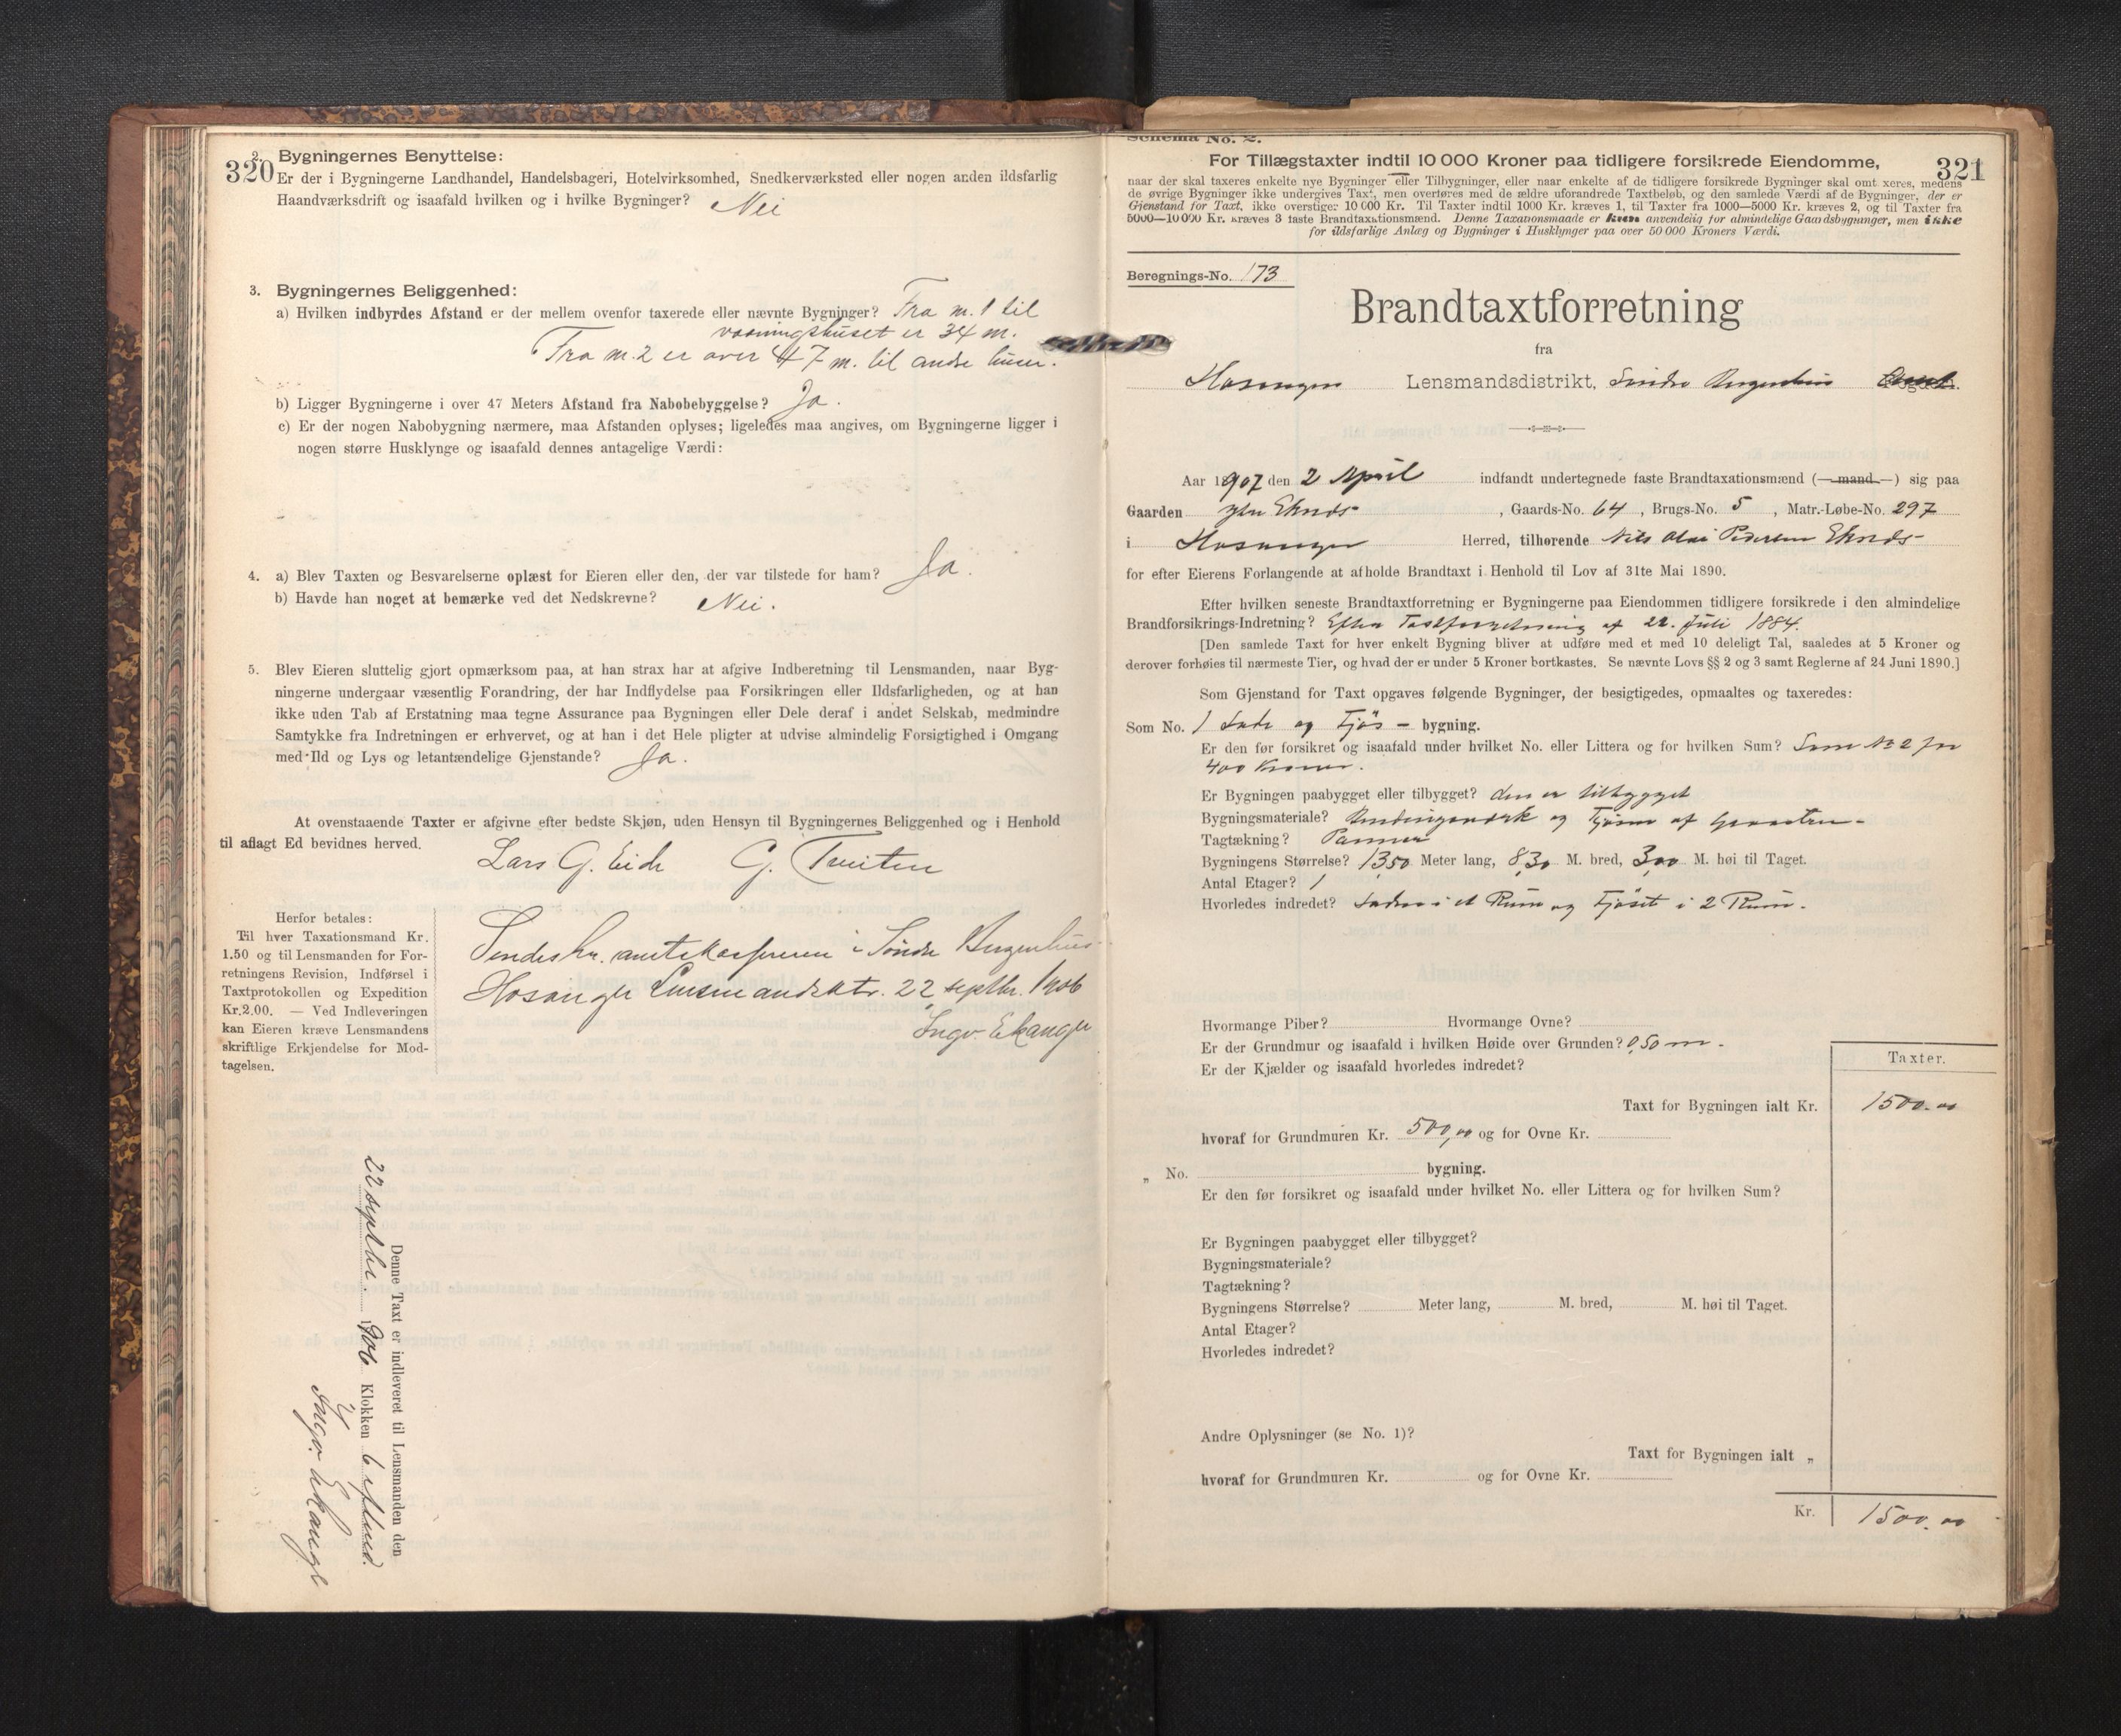 320
2. Bygningernes Benyttelse:
Er der i Bygningerne Landhandel, Handelsbageri, Hotelvirksomhed, Snedkerværksted eller nogen anden ildsfarlig
Haandværksdrift og isaafald hvilken og i hvilke Bygninger? Nei
3. Bygningernes Beliggenhed:
a) Hvilken indbyrdes Afstand er der mellem ovenfor taxerede eller nævnte Bygninger? Fra m. 1 til
vaaningshuset er 34 m.
Fra m. 2 er over 47 m. til andre huser.
b) Ligger Bygningerne i over 47 Meters Afstand fra Nabobebyggelse? Ja.
c) Er der nogen Nabobygning nærmere, maa Afstanden oplyses; ligeledes maa angives, om Bygningerne ligger i
nogen større Husklynge og isaafald dennes antagelige Værdi:
4. a) Blev Taxten og Besvarelserne oplæst for Eieren eller den, der var tilstede for ham? Ja.
b) Havde han noget at bemærke ved det Nedskrevne? Nei.
5. Blev Eieren sluttelig gjort opmærksom paa, at han strax har at afgive Indberetning til Lensmanden, naar Byg-
ningerne undergaar væsentlig Forandring, der har Indflydelse paa Forsikringen eller Ildsfarligheden, og at han
ikke uden Tab af Erstatning maa tegne Assurance paa Bygningen eller Dele deraf i andet Selskab, medmindre
Samtykke fra Indretningen er erhvervet, og at han i det Hele pligter at udvise almindelig Forsigtighed i Omgang
med Ild og Lys og letantændelige Gjenstande? Ja.
At ovenstaaende Taxter er afgivne efter bedste Skjøn, uden Hensyn til Bygningernes Beliggenhed og i Henhold
til aflagt Ed bevidnes herved.
Lars G. Eide G. Tveiten
Herfor betales:
Til hver Taxationsmand Kr.
1.50 og til Lensmanden for For-
retningens Revision, Indførsel i
Taxtprotokollen og Expedition
Kr. 2.00. — Ved Indleveringen
kan Eieren kræve Lensmandens
skriftlige Erkjendelse for Mod-
tagelsen.
Sendes hr. amtskassereren i Søndre Bergenhus
Hosanger Lensmandsktr. 22 septbr. 1906
Ingv. Ekanger
Denne Taxt er indleveret til Lensmanden den
22 septbr 1906 Klokken 6 eftmd.
Ingv. Ekanger
Schema No. 2.
321
For Tillægstaxter indtil 10 000 Kroner paa tidligere forsikrede Eiendomme,
naar der skal taxeres enkelte nye Bygninger eller Tilbygninger, eller naar enkelte af de tidligere forsikrede Bygninger skal omtaxeres, medens
de øvrige Bygninger ikke undergives Taxt, men overføres med de ældre uforandrede Taxtbeløb, og den samlede Værdi af de Bygninger, der er
Gjenstand for Taxt, ikke overstiger 10 000 Kr. Til Taxter indtil 1000 Kr. kræves 1, til Taxter fra 1000—5000 Kr. kræves 2, og til Taxter fra
5000—10 000 Kr. kræves 3 faste Brandtaxationsmænd. Denne Taxationsmaade er kun anvendelig for almindelige Gaardsbygninger, men ikke
for ildsfarlige Anlæg og Bygninger i Husklynger paa over 50 000 Kroners Værdi.
Beregnings-No. 173
Brandtaxtforretning
fra
Hosanger Lensmandsdistrikt, Søndre Bergenhus
Aar 1907 den 2 April indfandt undertegnede faste Brandtaxationsmænd (—mand—) sig paa
Gaarden ytre Eknes, Gaards-No. 64, Brugs-No. 5, Matr.-Løbe-No. 297
i Hosanger Herred, tilhørende Nils Olai Pedersen Eknes
for efter Eierens Forlangende at afholde Brandtaxt i Henhold til Lov af 31te Mai 1890.
Efter hvilken seneste Brandtaxtforretning er Bygningerne paa Eiendommen tidligere forsikrede i den almindelige
Brandforsikrings-Indretning? Efter Taxtforretning af 22. Juli 1884.
[Den samlede Taxt for hver enkelt Bygning bliver at udføre med et med 10 deleligt Tal, saaledes at 5 Kroner og
derover forhøies til nærmeste Tier, og hvad der er under 5 Kroner bortkastes. Se nævnte Lovs §§ 2 og 3 samt Reglerne af 24 Juni 1890.]
Som Gjenstand for Taxt opgaves følgende Bygninger, der besigtigedes, opmaaltes og taxeredes:
Som No. 1 Lade og Fjøs - bygning.
Er den før forsikret og isaafald under hvilket No. eller Littera og for hvilken Sum? Som № 2 for
400 Kroner.
Er Bygningen paabygget eller tilbygget? den er tilbygget
Bygningsmateriale? Bindingsværk og Fjøsen af Graasten
Tagtækning? Panner
Bygningens Størrelse? 13,50 Meter lang, 8,30 M. bred, 3,00 M. høi til Taget.
Antal Etager? 1
Hvorledes indredet? Laden i et Rum og Fjøset i 2 Rum.
Hvormange Piber? Hvormange Ovne?
Er der Grundmur og isaafald i hvilken Høide over Grunden? 0,50 m.
Er der Kjælder og isaafald hvorledes indredet?
Taxter.
Taxt for Bygningen ialt Kr. 1500.00
hvoraf for Grundmuren Kr. 500,00 og for Ovne Kr.
„ No. bygning.
Er den før forsikret og isaafald under hvilket No. eller Littera og for hvilken Sum?
Er Bygningen paabygget eller tilbygget?
Bygningsmateriale?
Tagtækning?
Bygningens Størrelse? Meter lang, M. bred, M. høi til Taget.
Antal Etager?
Hvorledes indredet?
Andre Oplysninger (se No. 1)?
Taxt for Bygningen ialt „
hvoraf for Grundmuren Kr. og for Ovne Kr.
Kr. 1500.00